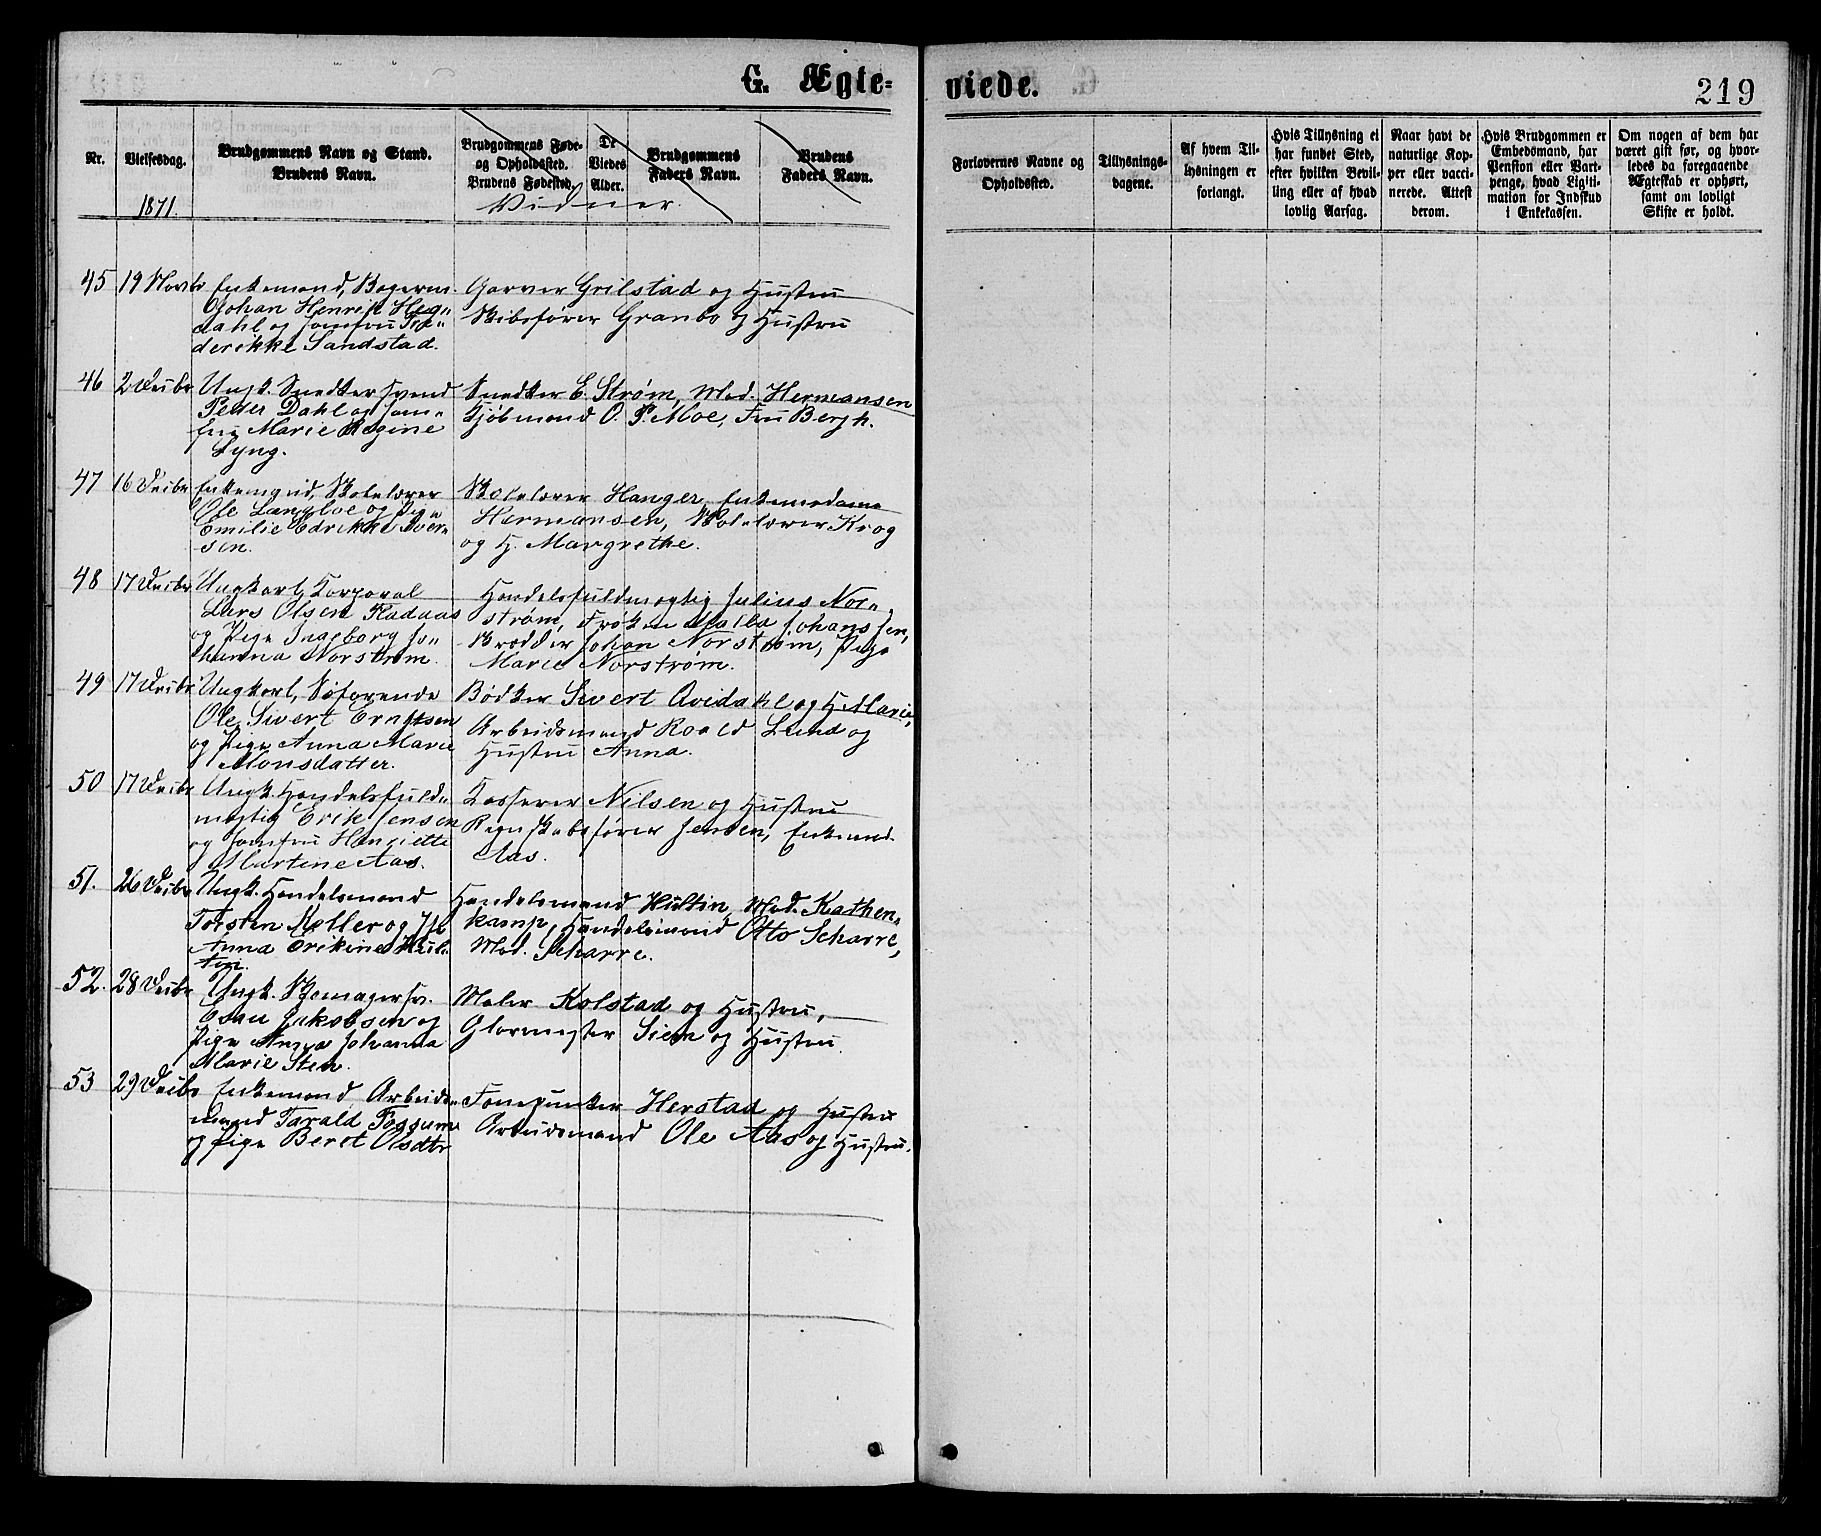 G. Ægte-
viede.
219
Nr.
Vielsesdag.
1871.
Brudgommens Navn og Stand.
Brudens Navn.
Brudgommens Føde-
og Opholdssted.
Brudens Fødested.
De
Viedes
Alder.
Brudgommens
Faders Navn.
Brudens
Faders Navn.
Vidner.
Forlovernes Navne og
Opholdssted.
Tillysnings-
dagene.
Af hvem Til-
lysningen er
forlangt.
Hvis Tillysning ei
har fundet Sted,
efter hvilken Bevil-
ling eller af hvad
lovlig Aarsag.
Naar havt de
naturlige Kop-
per eller vacci-
nerede. Attest
derom.
Hvis Brudgommen er
Embedsmand, har
Pension eller Vart-
penge, hvad Ligiti-
mation for Indskud
i Enkekassen.
Om nogen af dem har
været gift før, og hvor-
ledes da foregaaende
Ægteskab er ophørt,
samt om lovligt
Skifte er holdt.
45 19 Novbr Enkemand, Bagerm.
Johan Henrik Heg„
dahl og Jomfru Fre„
derikke Sandstad.
Garver Grilstad og Hustru
Skibsfører Granbo og Hustru
46 2 Decbr Ungk. Snedkersvend
Peder Dahl og Jom„
fru Marie Regine
Lyng.
Snedker E. Strøm, Mad. Hermansen
Kjøbmand O. P. Moe, Fru Bergh.
47 16 Decbr Enkemand, Skolelærer
Ole Langloe og Pige
Emilie Edrikke Iver„
sen.
Skolelærer Hanger, Enkemadame
Hermansen, Skolelærer Krog
og H. Margrethe.
48 17 Decbr Ungkarl, Korporal
Lars Olsen Fladaas
og Pige Ingeborg Jo„
hanna Norstrøm.
Handelsfuldmægtig Julius Nor„
strøm, Frøken Johanssen,
Skrædder Johan Norstrøm, Pige
Marie Norstrøm.
49 17 Decbr Ungkarl, Søfarende
Ole Sivert Ernstsen
og Pige Anna Marie
Monsdatter.
Bødker Sivert Qvidahl og H. Marie,
Arbeidsmand Roald Lund og
Hustru Anna.
50 17 Decbr Ungk. Handelsfuld„
mægtig Erik Jensen
og Jomfru Henriette
Martine Aas.
Kasserer Nilsen og Hustru
Regnskabsfører Jensen, Enkemd.
Aas.
51. 26 Decbr Ungk. Handelsmand
Torsten Møller og Pige
Anna Erikine Hul„
tin.
Handelsmand Hultin, Mad. Kathen„
kamp, Handelsmand Otto Scharre,
Mad. Scharre.
52. 28 Decbr Ungk. Skomagersv.
Esau Jakobsen og
Pige Anna Johanna
Marie Sten.
Maler Kolstad og Hustru,
Glarmester Siem og Hustru.
53 29 Decbr Enkemand, Arbeids„
mand Tarald Fossum
og Pige Beret Olsdtr
Herstad og Hustru
Arbeidsmand Ole Aas og Hustru.